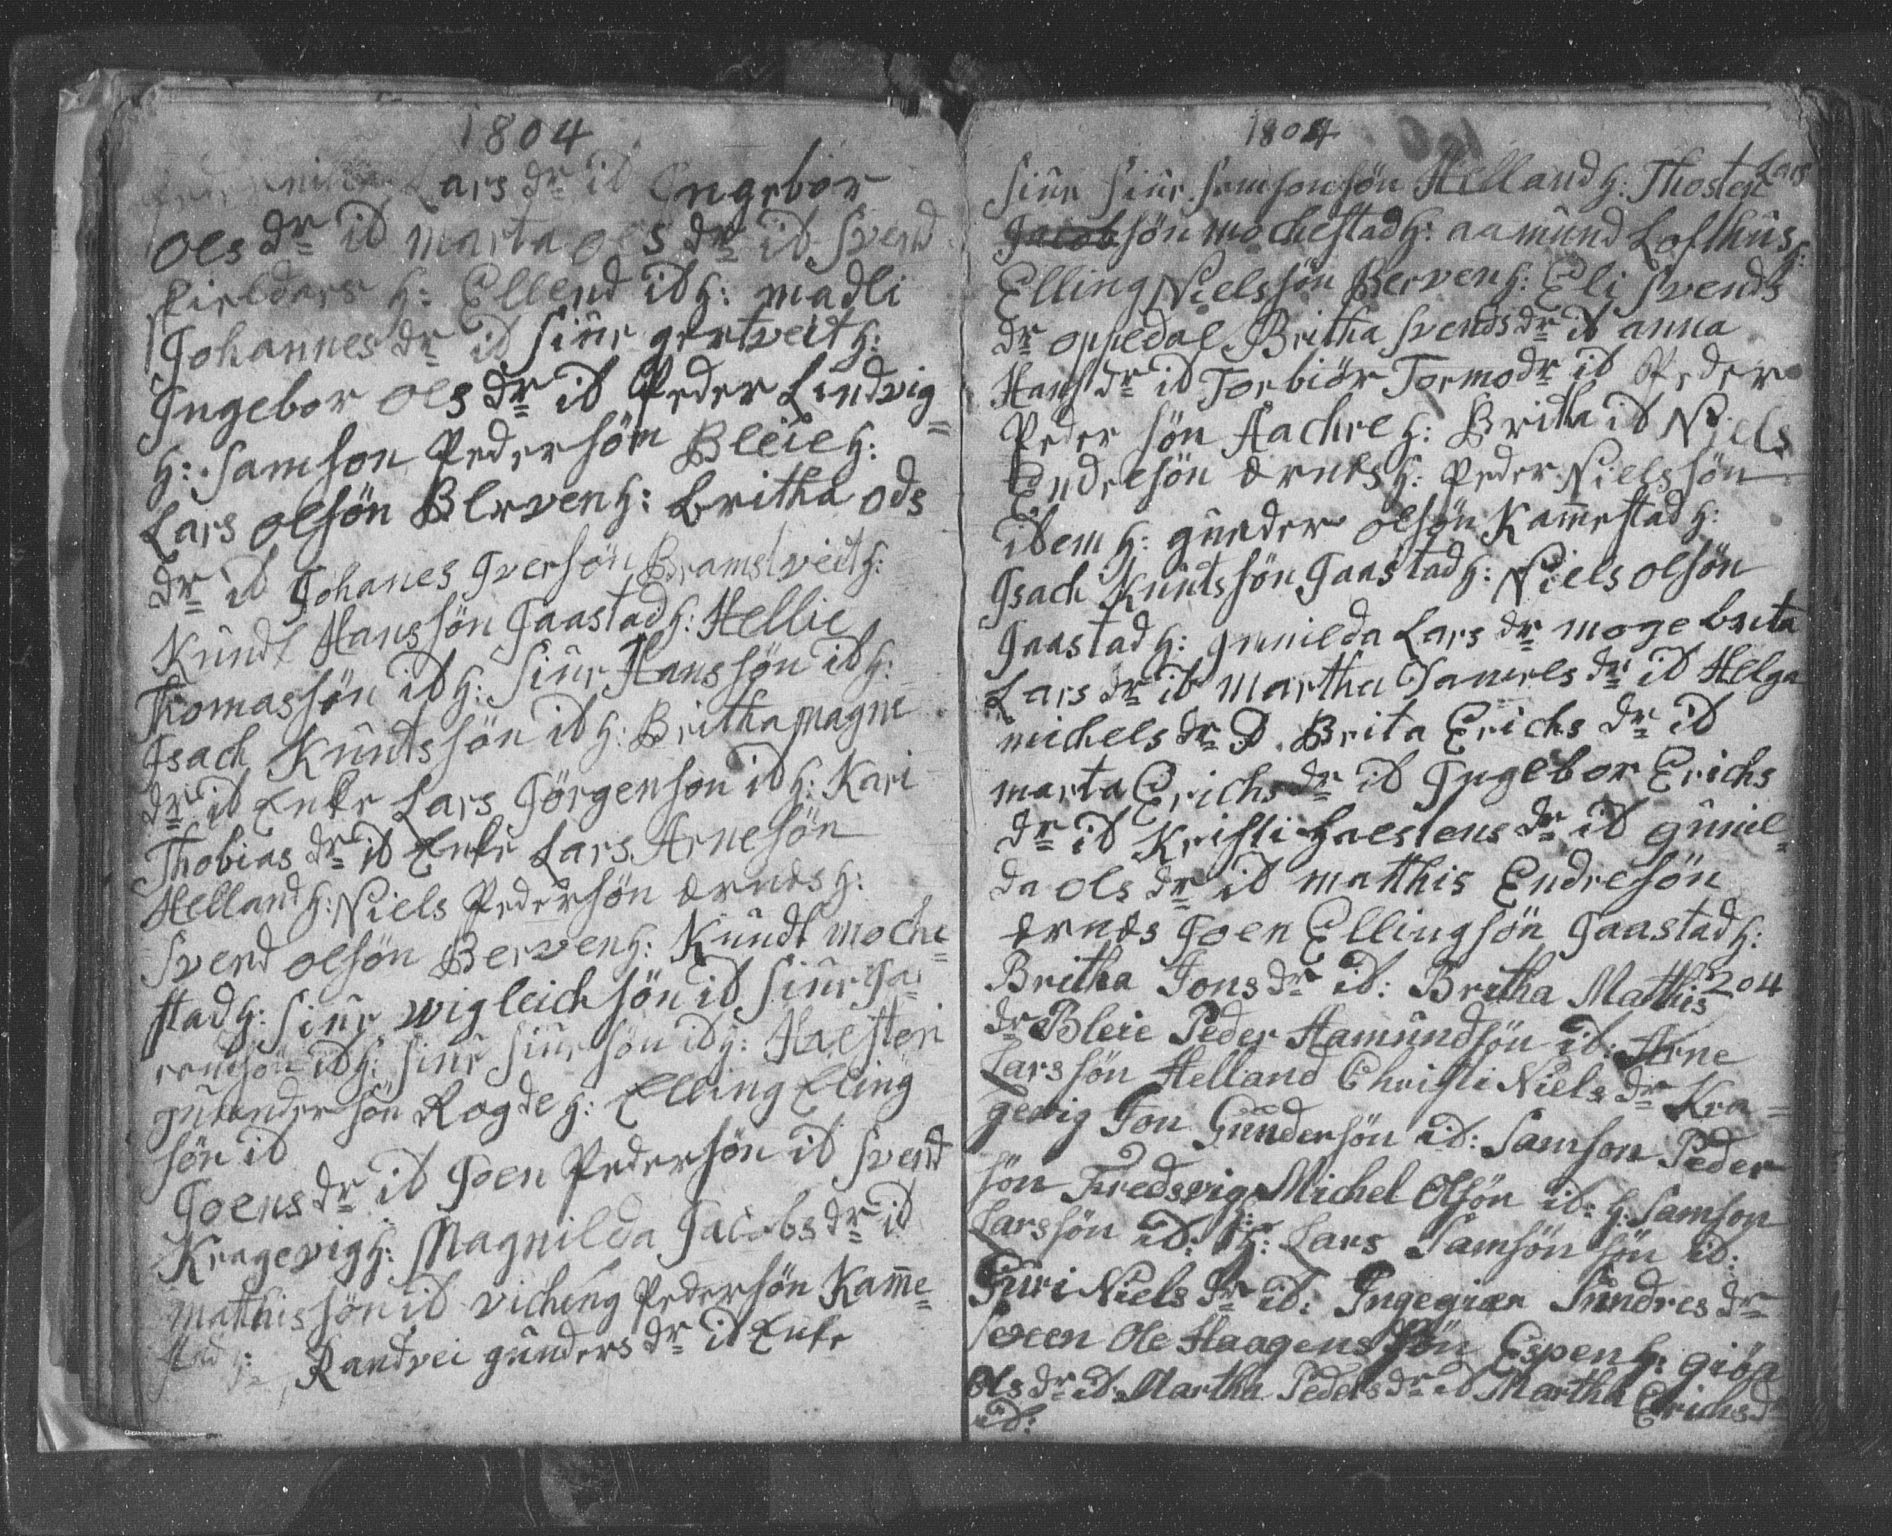 1804
Lars dr id Ingebor
ols dr id marta ols dr id Svend
h: Ellend id h: madli
Johannes dr id Siur gertveit h:
Ingebor ols dr id Peder Lindvig=
h: Samson Pedersön Bleie h:
Lars olsön Berven h: Britha ods
dr id Johanes Iversön Bramstveit h:
Kundt Hanssön Jaastad h: Hellie
Thomassön id h: Siur Hanssön id h:
Isach Kuntssön id h: Britha magne
dr id Enke Lars Jörgenson id h: Kari
Thobias dr id Enke Lars Arnesön
Helland h: Niels Pedersön ærnes h:
Svend olsön Berven h: Kundt moche=
stad h: Siur wigleichsön id Siur
id h: Siur Siursön id h: Halsten
gunndersön Rogde h: Elling Elling
sön id
Joens dr id Joen Pedersön id Svend
Kragevig h: Magnilda Jacobs dr id
mathissön id viching Pedersön Kamme=
stad h: Randvei gunders dr id Enke
1804
Siur Siur Samsonsön Helland h: Thosten Lars
Jacobsön mochestad h: aamund Lofthus h:
Elling Nielssön Berven h: Eli Svends
dr oppedal Britha Svends dr id anna
Hans dr id Torbiör Tormo dr id Peder
Peder sön Aachre h: Britha id Niels
Endresön ærnes h: Peder Nielssön
idem h: gunder olsön Kammestad h:
Isach Kuntssön Jaastad h: Niels olsön
Jaastad h: gunilda Lars dr moge brita
Lars dr id Martha Daniels dr id Helga
michels dr D. Brita Erichs dr id
marta Erichs dr id Ingebor Erichs
dr id Kristi haestens dr id gunil=
da ols dr id matthis Endresön
ærnes Joen Ellingsön Jaastad h:
Britha Jons dr id: Britha Mathis 204
dr Bleie Peder Aamundsön id: Arne
Larssön Helland Christi Niels dr Kra=
gevig Jon Gundersön id: Samson Peder
sön Fredsvig Michel Olsön id: h: Samson
Larssön id: h: Lars Samsön sön id:
Guri Niels dr id: Ingegiær Sundres dr
Sexen Ole Haagenssön Espen h: giöa
Ols dr id: Martha Peders dr id Martha Erichs dr
id: